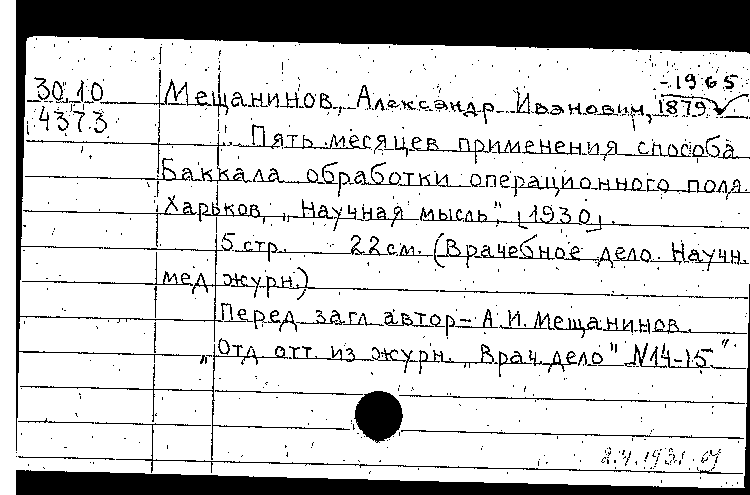 -1965
30.10 Мещанинов, Александр Иванович, 1879
4373 Пять месяцев применения способа
Баккала обработки операционного поля.
Харьков, „Научная мысль“, [1930].
5 стр. 22 см. (Врачебное дело. Научн.
мед журн.)
Перед загл автор – А.И. Мещанинов.
„Отд отт. из журн. „Врач. дело“ N14-15.“